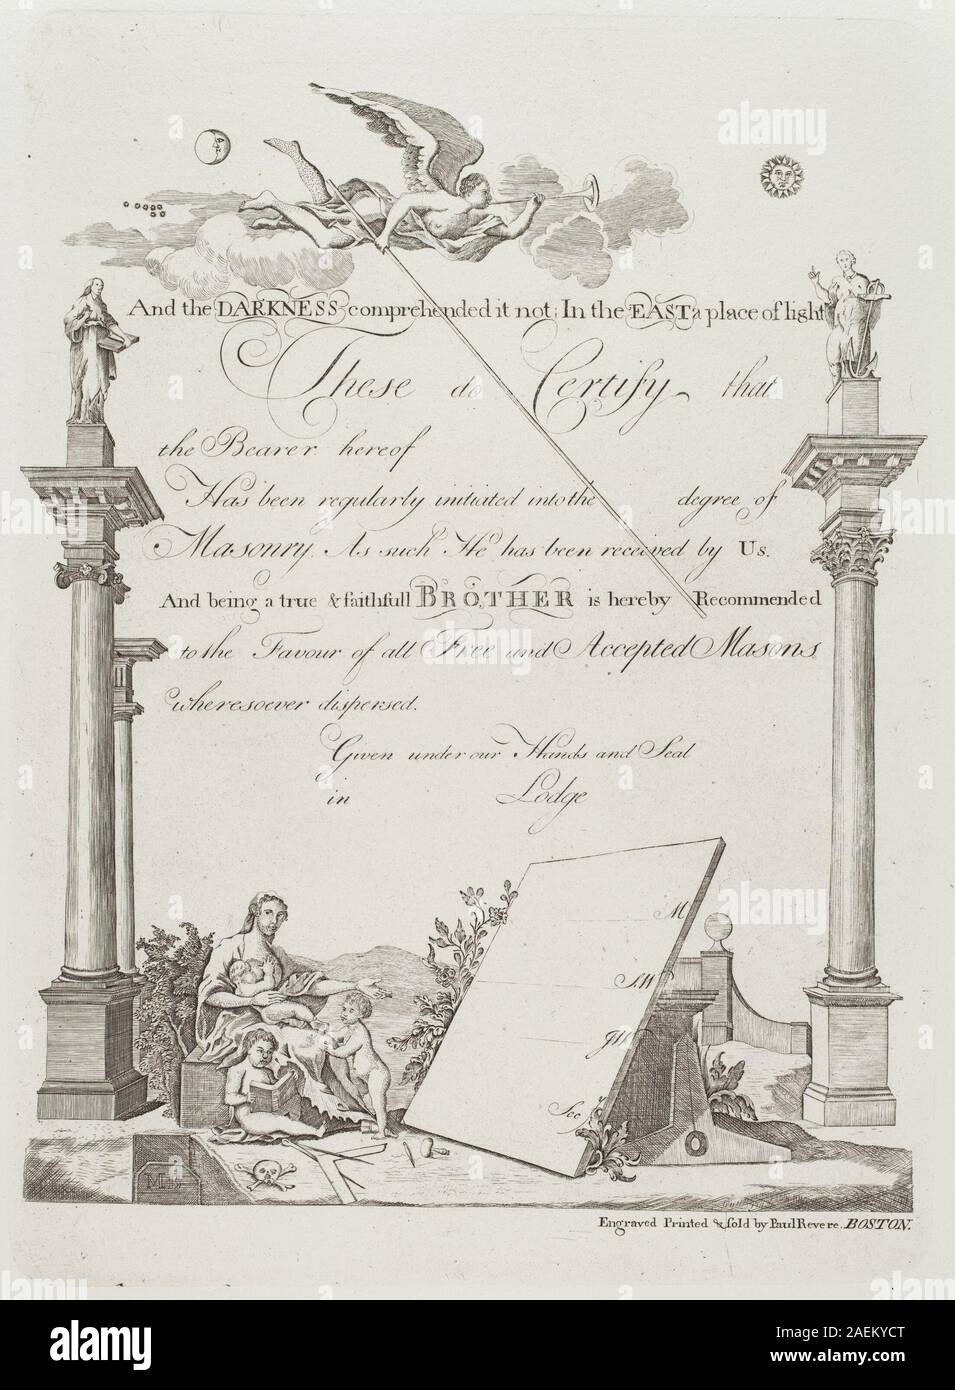 And the DARKNESS comprehended it not; In the EAST a place of light
These do Certify that
the Bearer hereof
Has been regularly initiated into the degree of
Masonry. As such He has been received by Us.
And being a true & faithfull BROTHER is hereby Recommended
to the Favour of all Free and Accepted Masons
wheresoever dispersed.
Given under our Hands and Seal
in Lodge
M
S.W
J.W
Sec
Engraved Printed & sold by Paul Revere. BOSTON.
alamy
Image ID: 2AEKYCT
www.alamy.com